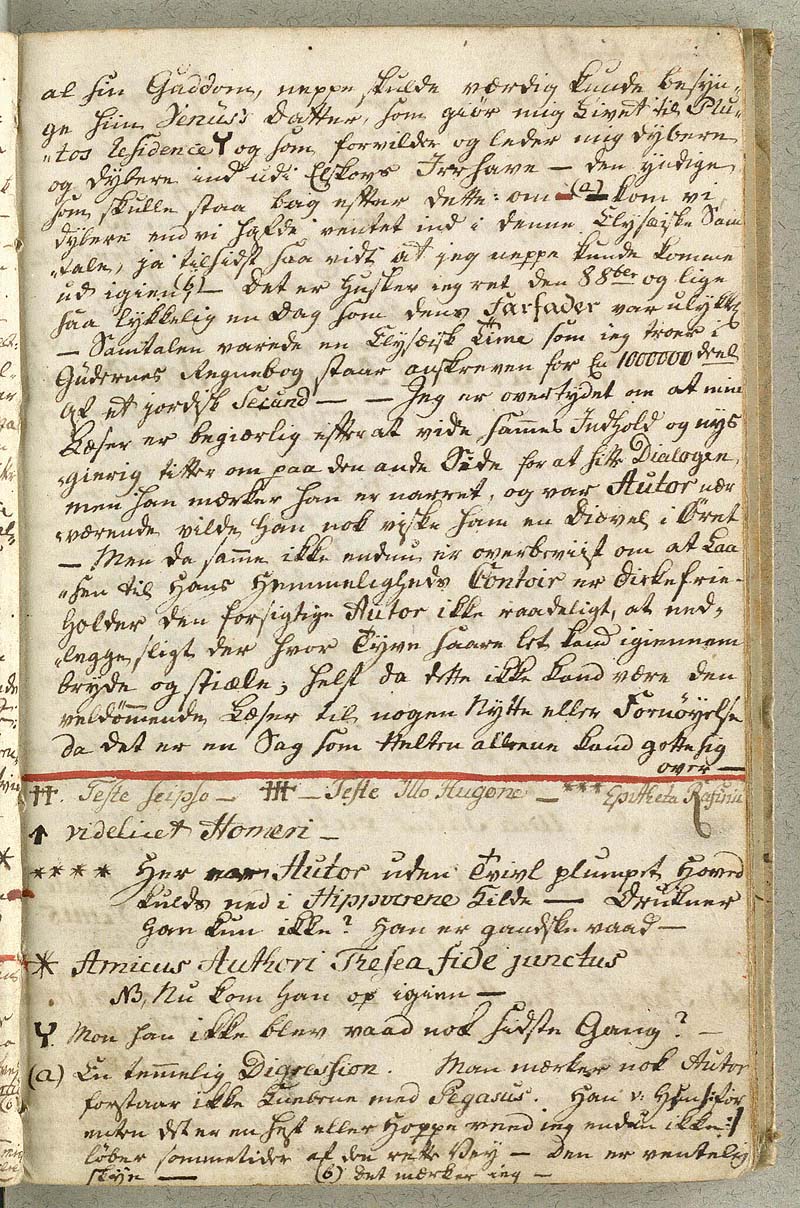 al sin Guddom, neppe skulde værdig kunde besyn-
ge hiin Venus's Datter, som giør mig Livet til Plu-
-tos Residence Y og som forvilder og leder mig dybere
og dybere ind udi Elskovs Irrhave — den yndige
som skulle staa bag efter dette: om — (a) — kom vi
dybere end vi hafde ventet ind i denne Elysæiske Sam
-tale, ja tilsidst saa vidt at jeg neppe kunde komme
ud igien (b) — Det er husker ieg ret den 8 8ber og lige
saa lykkelig en Dag som dens Farfader var ulykkel
— Samtalen varede en Elysæisk Time som ieg troer i
Gudernes Regnebog staar anskreven for En 1000000 deel
af et jordisk Secund — — Jeg er overtydet om at min
Læser er begiærlig efter at vide sammes Indhold og nys
-gierig titter om paa den ande Side for at hitte Dialogen,
men han mærker han er narret, og var Autor nær
-værende vilde han nok viske ham en Diævel i Øret
— Men da samme ikke endnu er overbeviist om at Laa
-sen til Hans Hemmeligheds Contoir er Dirkefrie-
holder den forsigtige Autor ikke raadeligt, at ned-
-legge sligt der hvor Tyve saare let kand igiennem
bryde og stiæle; helst da dette ikke kand være den
veldömmende Læser til nogen Nytte eller Fornøyelse
da det er en Sag som Helten alleene kand gotte sig
over —
‡‡. Teste seipso — ‡‡‡ — Teste Illo Hugone — *** Epitheta Rasurii
↑ videlicet Homeri —
**** Her Autor uden Tvivl plumpet Hoved
kulds ned i Hippocrene Kilde — Drukner
han kun ikke? Han er gandske vaad —
* Amicus Authori Thesea fide junctus
NB, Nu kom han op igien —
Y. Mon han ikke blev vaad nok sidste Gang? —
(a) En temmelig Digression. Man mærker nok Autor
forstaar ikke Luebene med Pegasus. Han v: Hun |: for
enten det er en Hest eller Hoppe veed ieg endnu ikke :|
løber sommetider af den rette Vey — Den er ventelig
skye — (b) det mærker ieg —